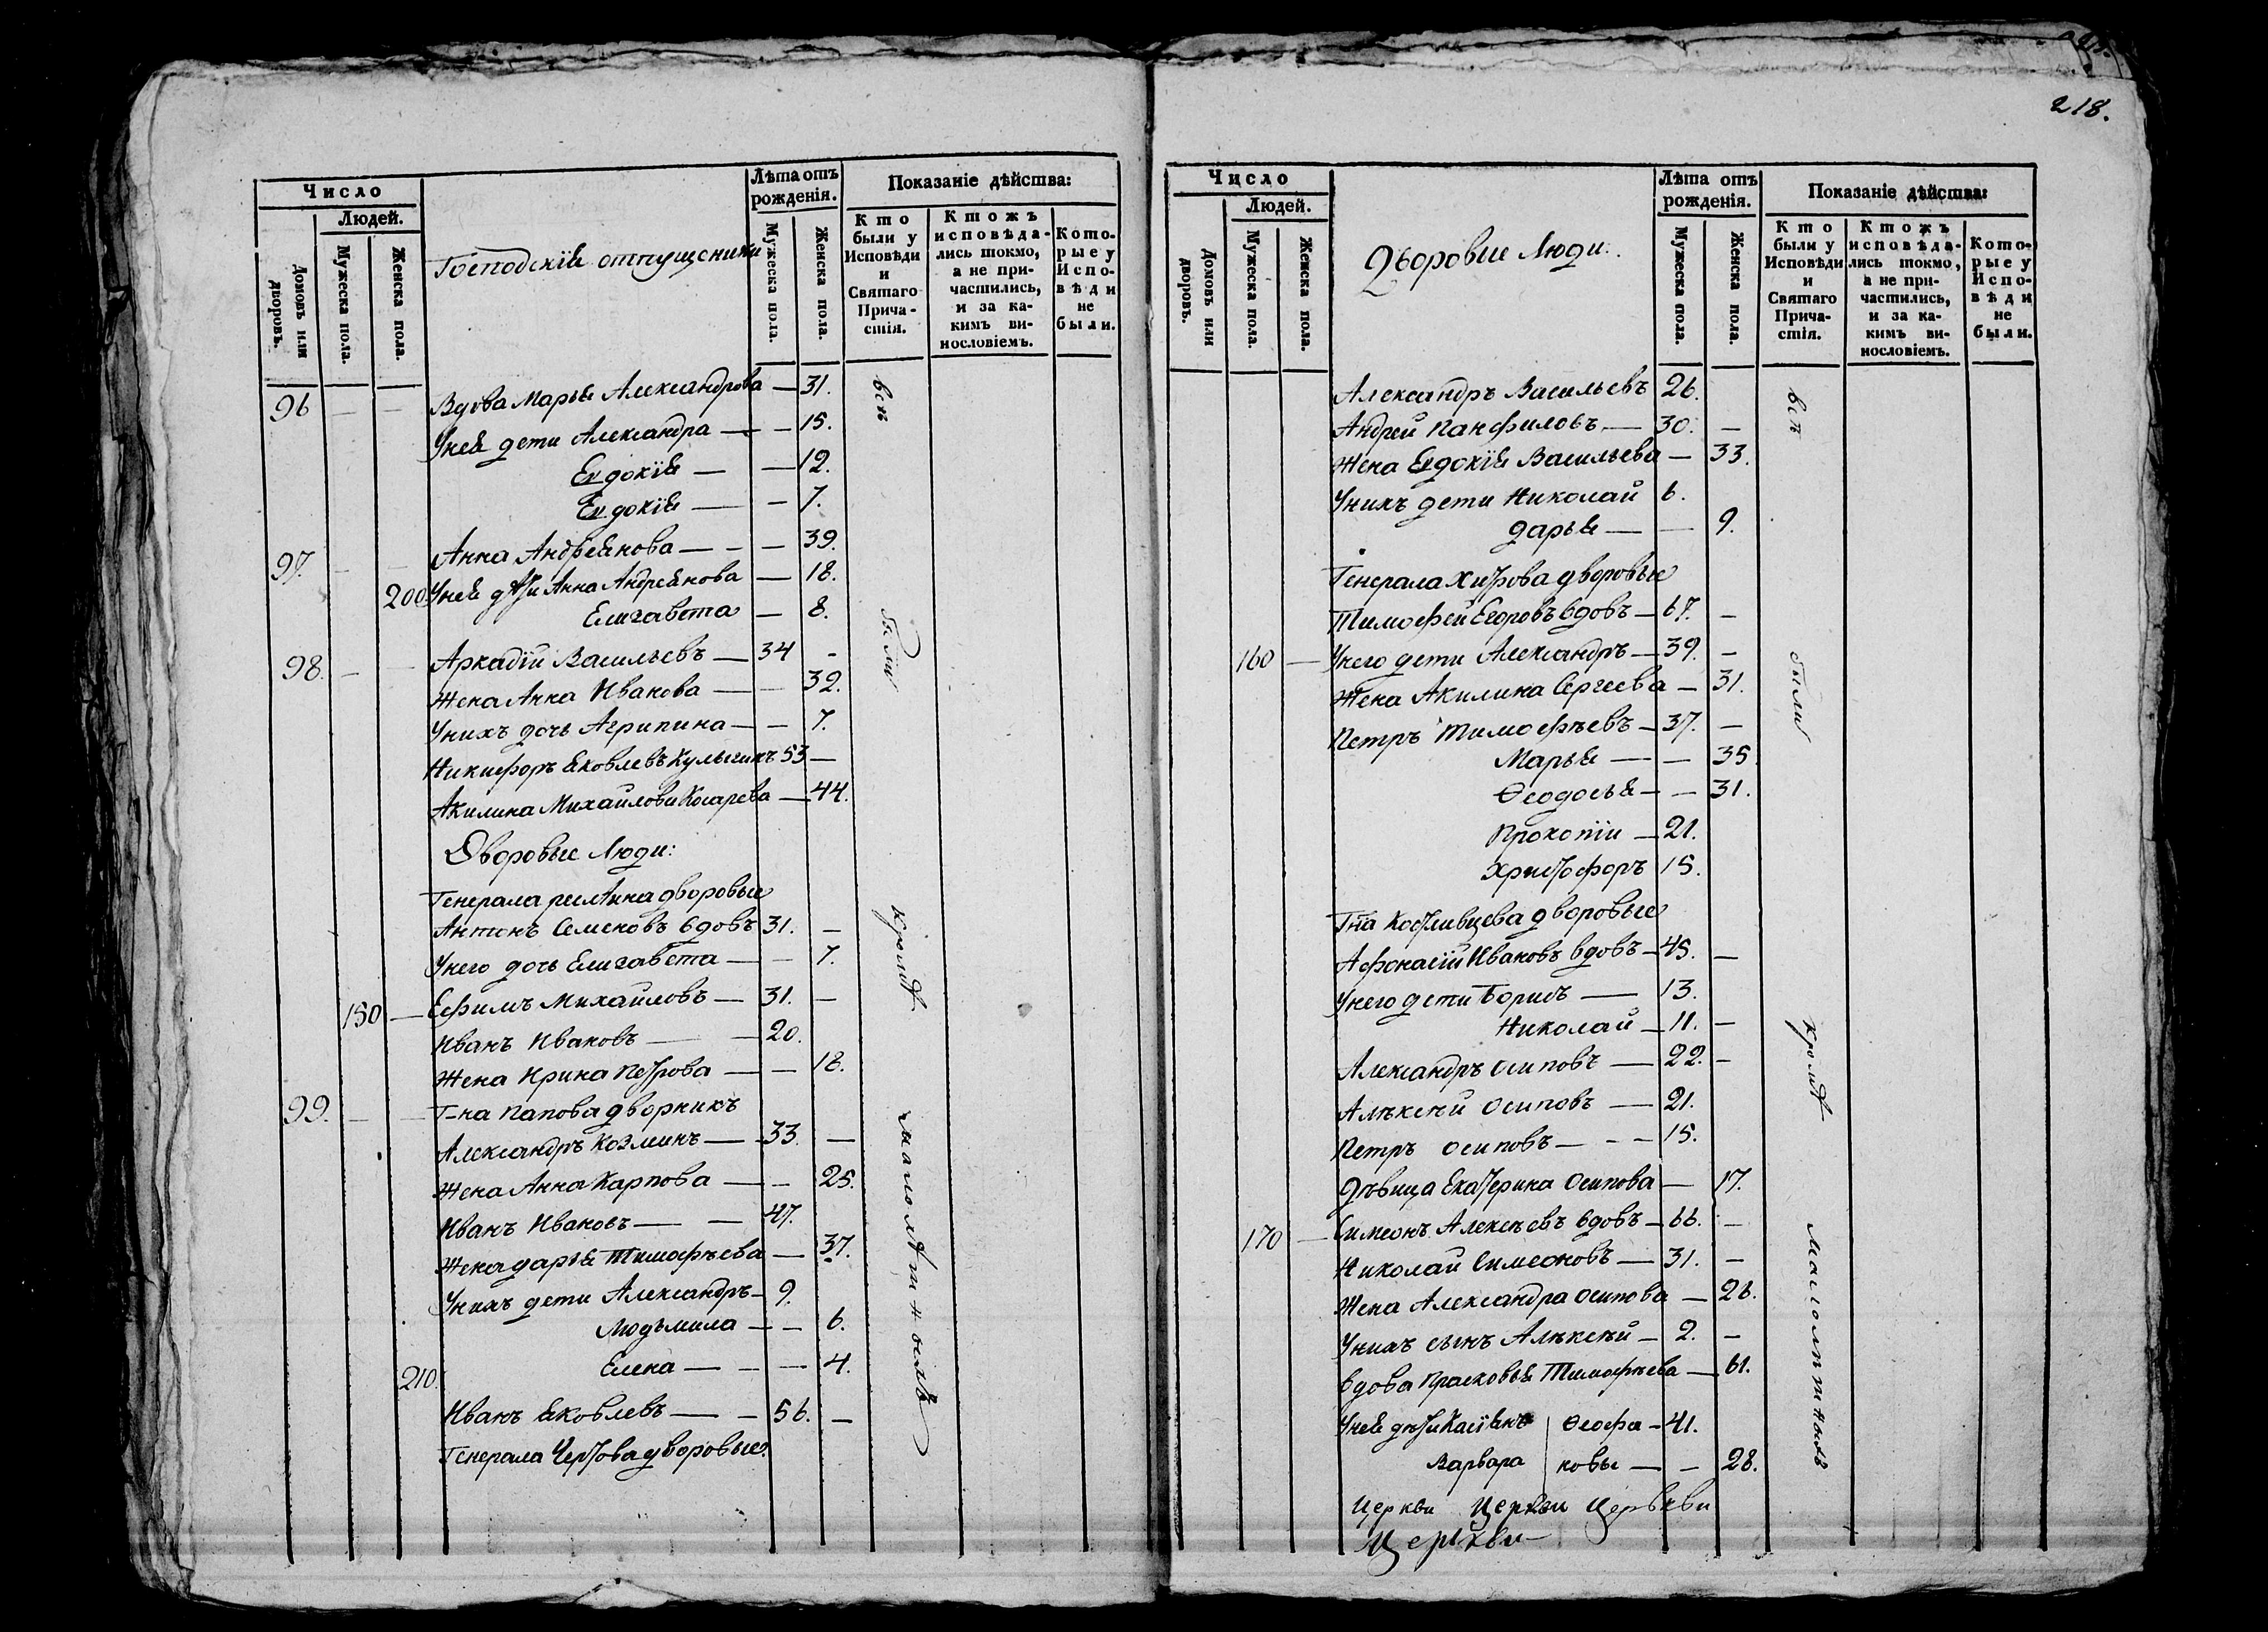 218.
Число
Людей.
Домовъ или дворовъ.
Мужеска пола.
Женска пола.
Господскія отпущеники
Лѣта отъ рожденія.
Мужеска пола.
Женска пола.
Показаніе дѣйства:
Кто были у Исповѣди и Святаго Прича-стія.
Ктожъ исповѣда-лись токмо, а не при-частились, и за ка-кимъ ви-нословіемъ.
Кото-рые у Испо-вѣди не были.
96 — — Вдова Марья Александрова — 31.
Унея дети Александра — — 15.
Евдокія — — 12.
Евдокія — — 7.
97. — — Анна Андреянова — — — 39.
200. Унея дѣти Анна Андреянова — 18.
Елизавета — 8.
98. — — Аркадій Васильевъ — 34 -
Жена Анна Иванова — — 32.
Унихъ дочь Агрипина — — 7.
Никифоръ Яковлевъ 53 —
Акилина Михайлова Косарева — 44.
Дворовые Люди:
Генерала дворовые
Антонъ Семеновъ вдовъ 31. —
Унего дочь Елизавета — — 7.
150 — Ефимъ Михайловъ — 31. —
Иванъ Ивановъ — — 20.
Жена Ирина Петрова — — 18.
99. — — Г-на Папова дворникъ
Александръ Козминъ — 33. —
Жена Анна Карпова — — 25.
Иванъ Ивановъ — — 47.
Жена дарья Тимофѣева — 37.
Унихъ дети Александръ — 9.
Людьмила — — 6.
210. Елена — — — 4.
Иванъ Яковлевъ — — 56. —
Генерала Чертова дворовые.
всѣ были кромѣ малолѣтныхъ
Число
Людей.
Домовъ или дворовъ.
Мужеска пола.
Женска пола.
Дворовые Люди:
Лѣта отъ рожденія.
Мужеска пола.
Женска пола.
Показаніе дѣйства:
Кто были у Исповѣди и Святаго Прича-стія.
Ктожъ исповѣда-лись токмо, а не при-частились, и за ка-кимъ ви-нословіемъ.
Кото-рые у Испо-вѣди не были.
Александръ Васильевъ 26.
Андрей Панфиловъ — 30. —
Жена Евдокія Васильева — 33.
Унихъ дети Николай 6.
дарья — — 9.
Генерала Хитрова дворовые
Тимофей Егоровъ вдовъ — 67. —
160 — Унего дети Александръ — 39. —
Жена Акилина Сергеева — 31.
Петръ Тимофѣевъ — 37. —
Марья — — 35
Ѳеодосья — — 31.
Прокопій — 21.
Христофоръ 15.
Гна дворовые
Афонасій Ивановъ вдовъ — 45. —
Унего дети Борисъ — 13.
Николай — 11. —
Александръ Осиповъ — 22. —
Алѣксѣй Осиповъ — 21.
Петръ Осиповъ — — — 15.
Дѣвица Екатерина Осипова — 17.
170 — Симеонъ Алексѣевъ вдовъ — 66. —
Николай Симеоновъ — 31. —
Жена Александра Осипова — 26.
Унихъ сынъ Алѣксѣй — 2. —
Вдова Прасковья Тимофѣева — 61.
Унея дѣти Касіянъ Ѳеофа — 41.
Варвара новы — — 28.
Церкви Церкви Церькви
Церькви
всѣ были кромѣ малолѣтныхъ